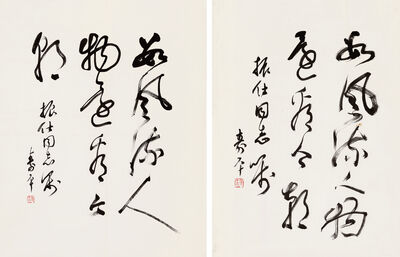 数风流人物
还看今朝
振仕同志嘱
寿平
数风流人
物还看今
朝
振仕同志嘱
寿平